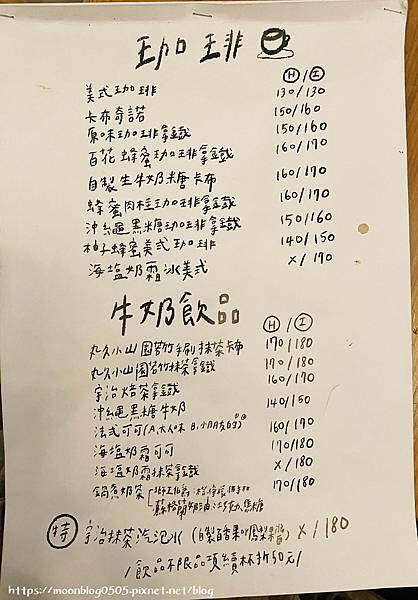 珈琲
Ⓗ/Ⓘ
美式珈琲 130/130
卡布奇諾 150/160
原味珈琲拿鐵 150/160
百花蜂蜜珈琲拿鐵 160/170
自製生牛奶糖卡布 160/170
蜂蜜肉桂珈琲拿鐵 160/170
沖繩黑糖珈琲拿鐵 150/160
柚子蜂蜜美式珈琲 140/150
海塩奶霜冰美式 X/170
牛奶飲品
Ⓗ/Ⓘ
丸久小山園若竹手刷抹茶卡布 170/180
丸久小山園若竹抹茶拿鐵 170/180
宇治焙茶拿鐵 160/170
沖繩黑糖牛奶 140/150
法式可可(A.大人味 B.小朋友) 160/170
海塩奶霜可可 170/180
海塩奶霜抹茶拿鐵 X/180
鍋煮奶茶 170/180
蘇格蘭奶油巧克力焦糖
特 宇治抹茶汽泡水(自製百香果or鳳梨醬) X/180
/飲品不限品項續杯折50元/
https://moonblog0505.pixnet.net/blog